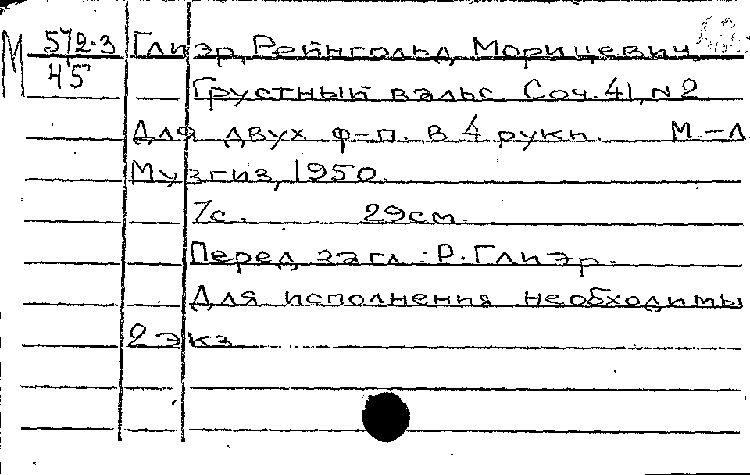 М 572-3 Глиэр, Рейнгольд Морицевич
45 Грустный вальс Соч. 41, N2
Для двух ф-п. в 4 руки. М-Л
Музгиз, 1950.
7с. 29см.
Перед загл: Р. Глиэр.
Для исполнения необходимы
2 экз